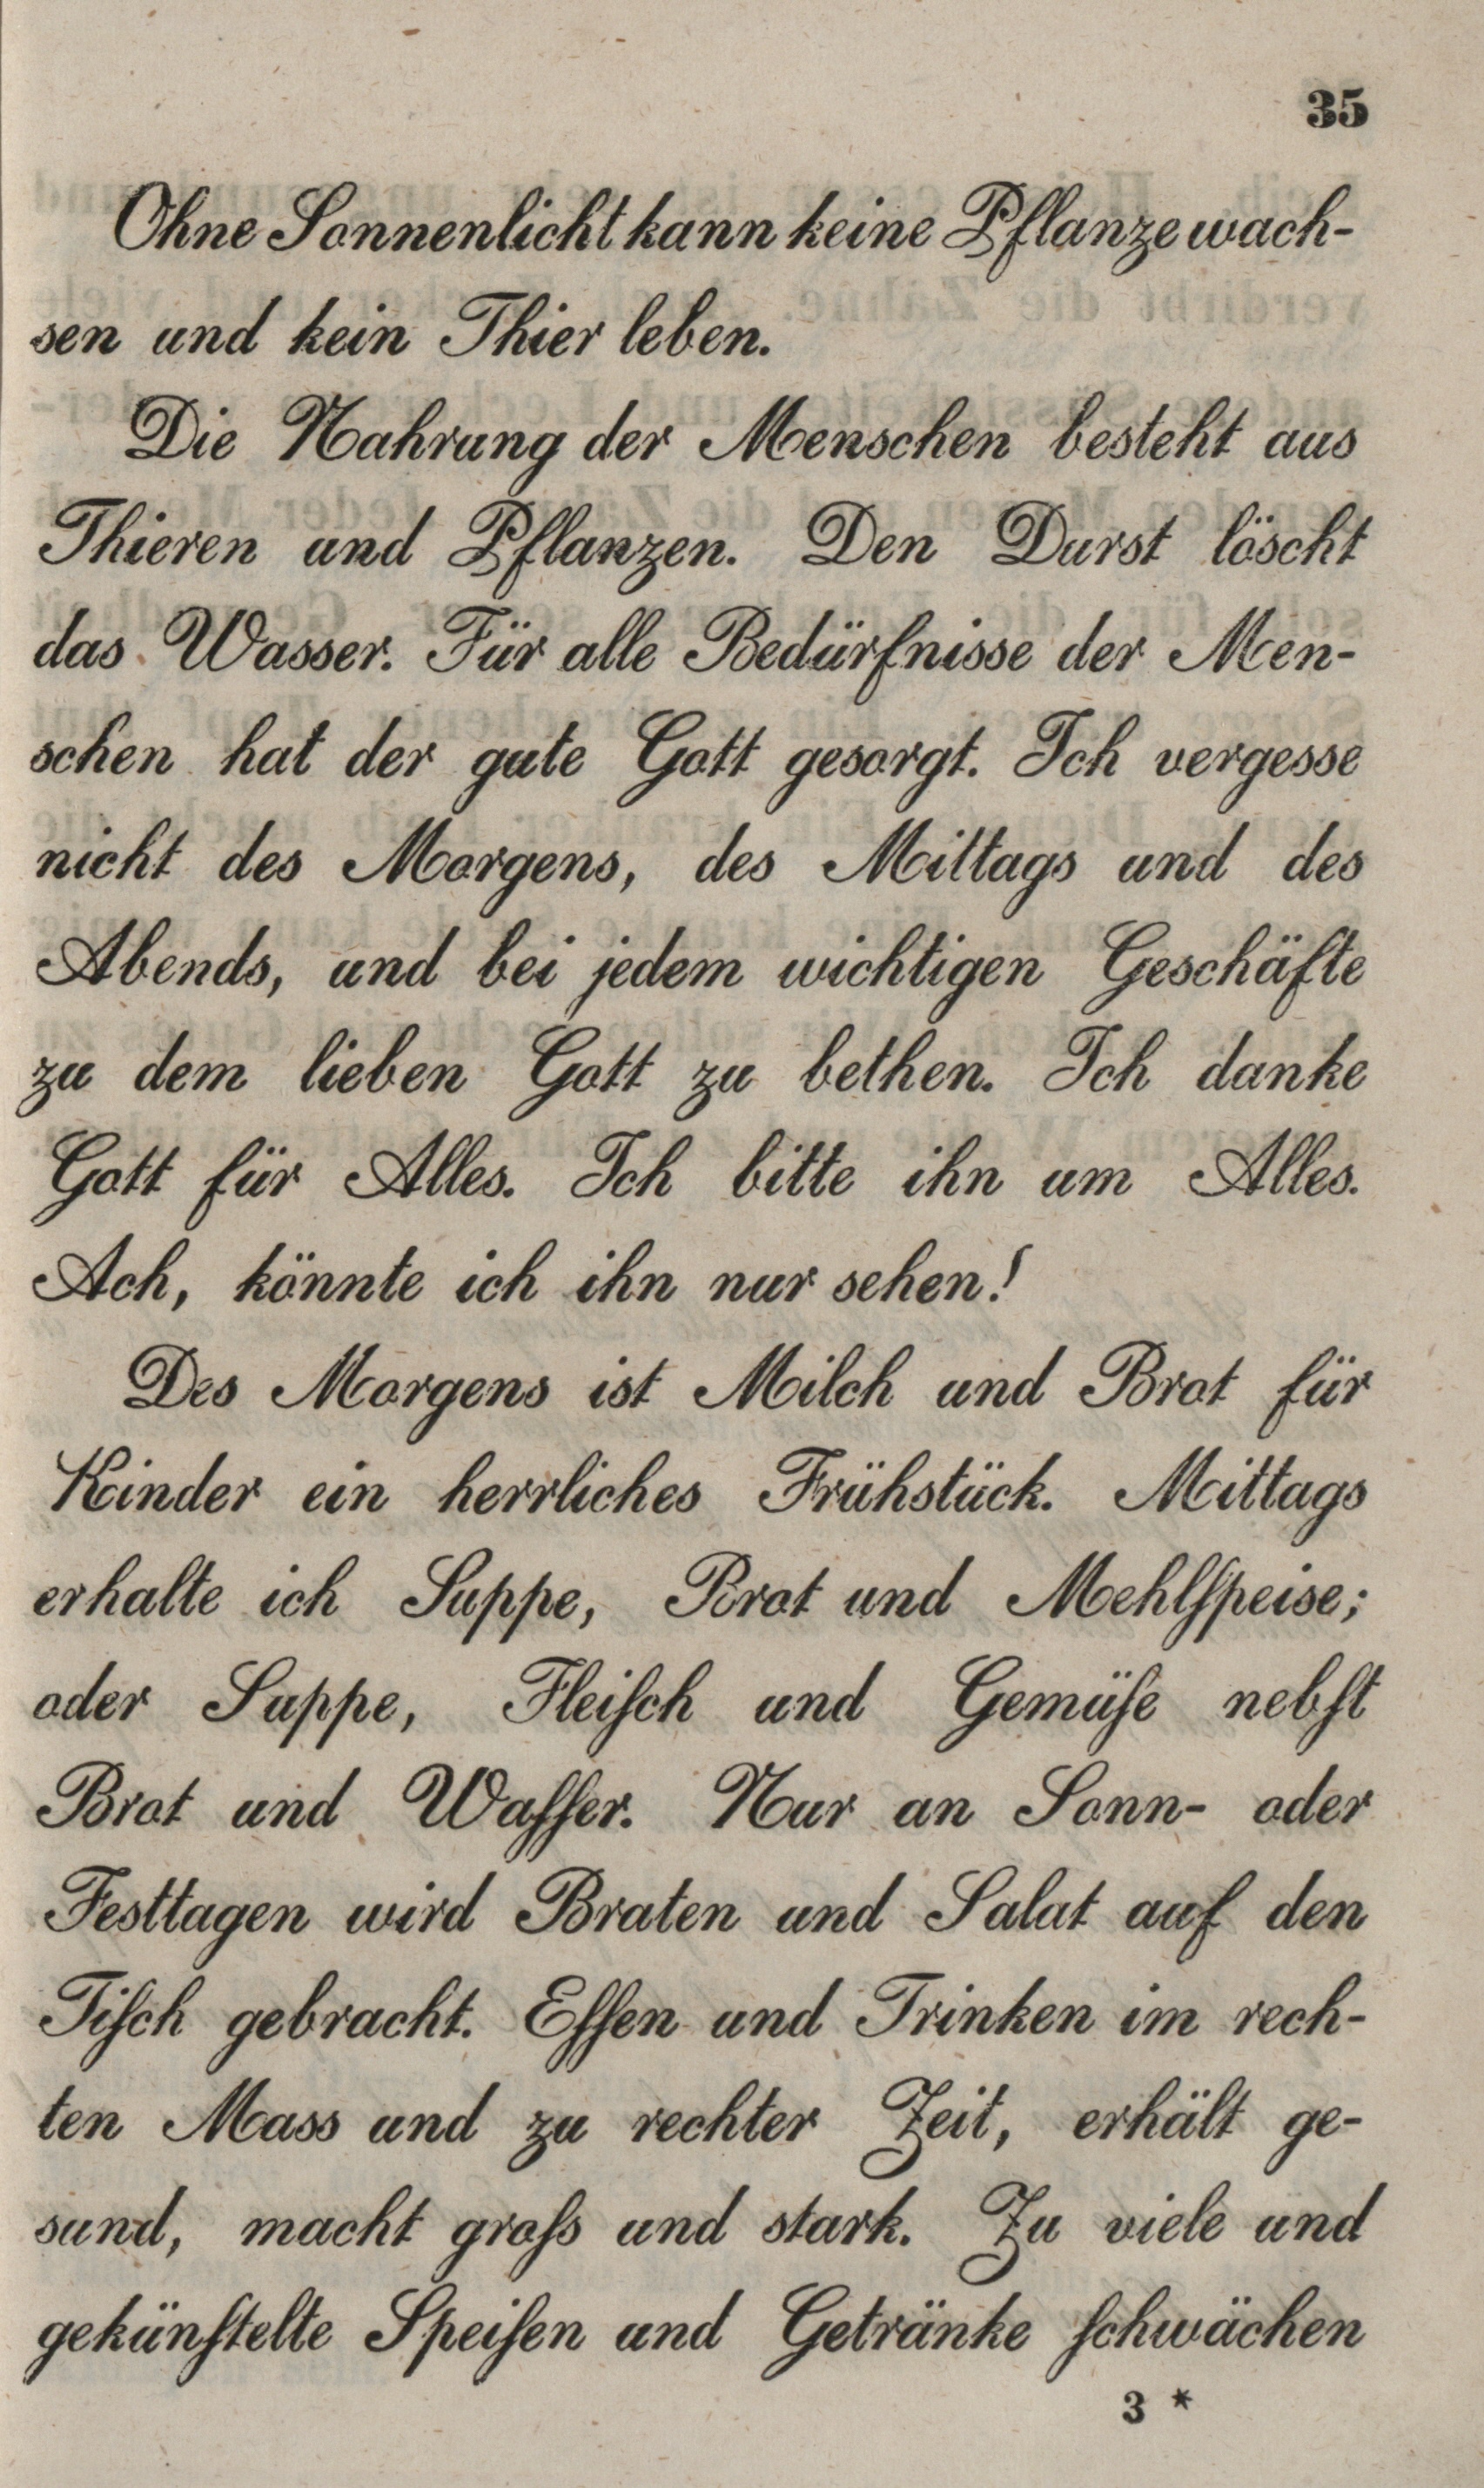 35
Ohne Sonnenlicht kann keine Pflanze wach-
sen und kein Thier leben.
Die Nahrung der Menschen besteht aus
Thieren und Pflanzen. Den Durst löscht
das Wasser. Für alle Bedürfnisse der Men-
schen hat der gute Gott gesorgt. Ich vergesse
nicht des Morgens, des Mittags und des
Abends, und bei jedem wichtigen Geschäfte
zu dem lieben Gott zu bethen. Ich danke
Gott für Alles. Ich bitte ihn um Alles.
Ach, könnte ich ihn nur sehen!
Des Morgens ist Milch und Brot für
Kinder ein herrliches Frühstück. Mittags
erhalte ich Suppe, Brot und Mehlſpeise;
oder Suppe, Fleiſch und Gemüſe nebſt
Brot und Waſſer. Nur an Sonn- oder
Festtagen wird Braten und Salat auf den
Tiſch gebracht. Eſſen und Trinken im rech-
ten Mass und zu rechter Zeit, erhält ge-
sund, macht groſs und stark. Zu viele und
gekünſtelte Speiſen und Getränke ſchwächen
3 *